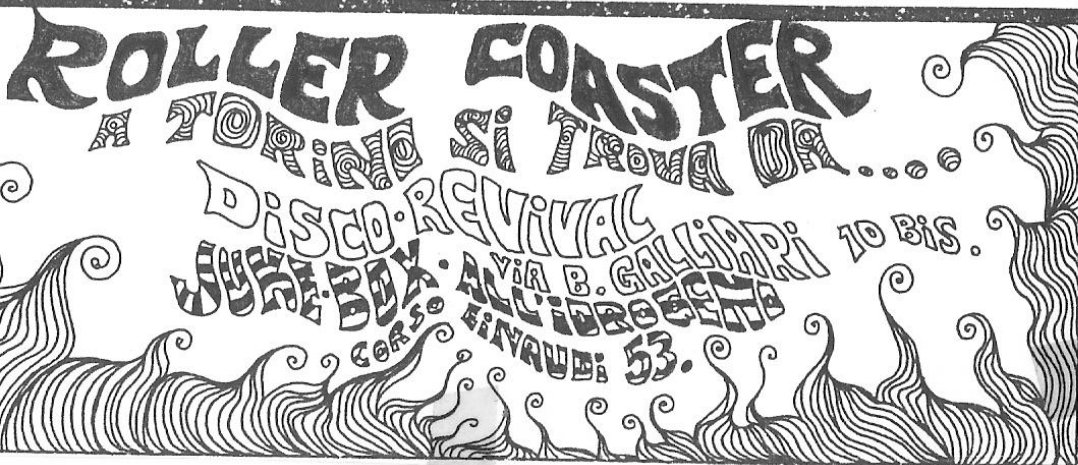 ROLLER COASTER
A TORiNO Si TROVA DA.....
DiSCO·REViVAL
ViA B. GALLiARi 10 BiS.
JUKE·BOX·ALL'iDROGENO
CORSO EiNAUDi 53.